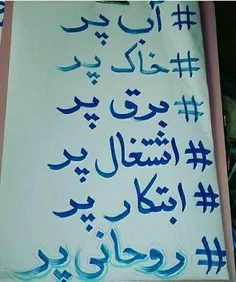 #آب پر
#خاک پر
#برق پر
#اشتغال پر
#ابتکار پر
#روحانی پر